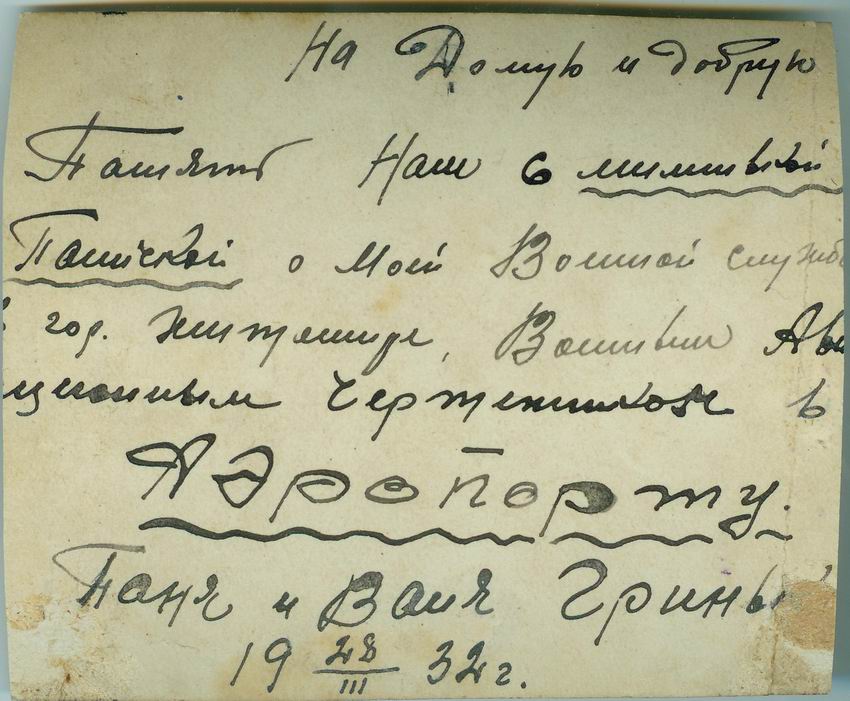 На Долгую и добрую
Память с милинькой
Танічкой о Моей Военной служб
гор. Житомире, Военным Ави
ционным Чертежником в
Аэропорту.
Таня и Ваня Грины
19 28/III 32 г.